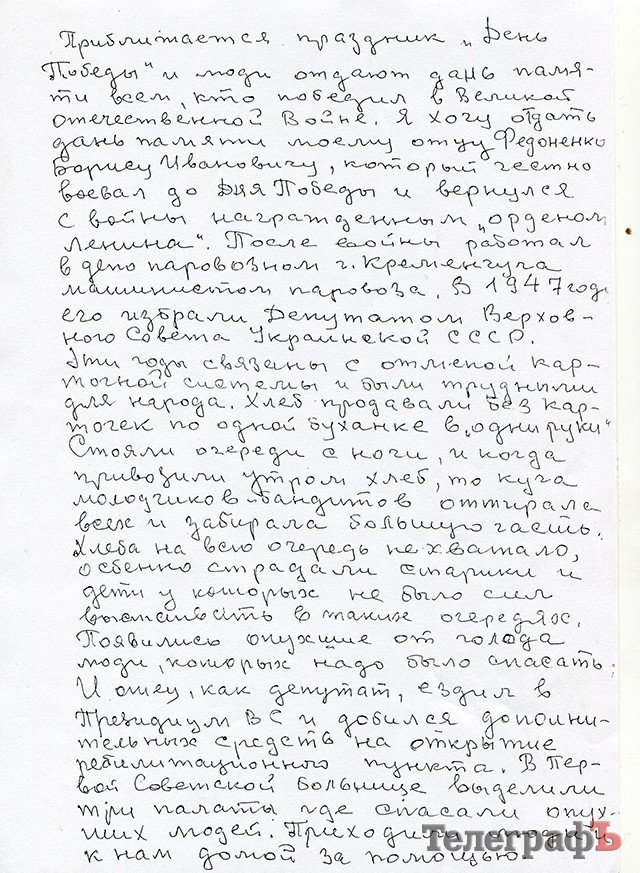 Приближается праздник „День
Победы" и люди отдают дань памя-
ти всем, кто победил в Великой
отечественной Войне. Я хочу отдать
дань памяти моему отцу Федоненко
Борису Ивановичу, который честно
воевал до Дня Победы и вернулся
с войны награжденным „орденом
Ленина". После войны работал
в депо паровозном г. Кременчуга
машинистом паровоза. В 1947 годе
его избрали Депутатом Верхов-
ного Совета Украинской СССР.
Эти годы связаны с отменой кар-
точной системы и были трудными
для народа. Хлеб продавали без кар-
точек по одной буханке в „одни руки"
Стояли очереди с ночи, и когда
привозили утром хлеб, то куча
молодчиков-бандитов оттирала
всех и забирала большую часть.
Хлеба на всю очередь не хватало,
осбенно страдали старики и
дети у которых не было сил
выстаивать в таких очередях.
Появились опухшие от голода
люди, которых надо было спасать.
И отец, как депутат, ездил в
Президиум ВС и добился дополни-
тельных средств на открытие
ребилитационного пункта. В Пер-
вой Советской больнице выделили
три палаты где спасали опух-
ших людей. Приходили люди и
к нам домой за помощью
ТелеграфЪ